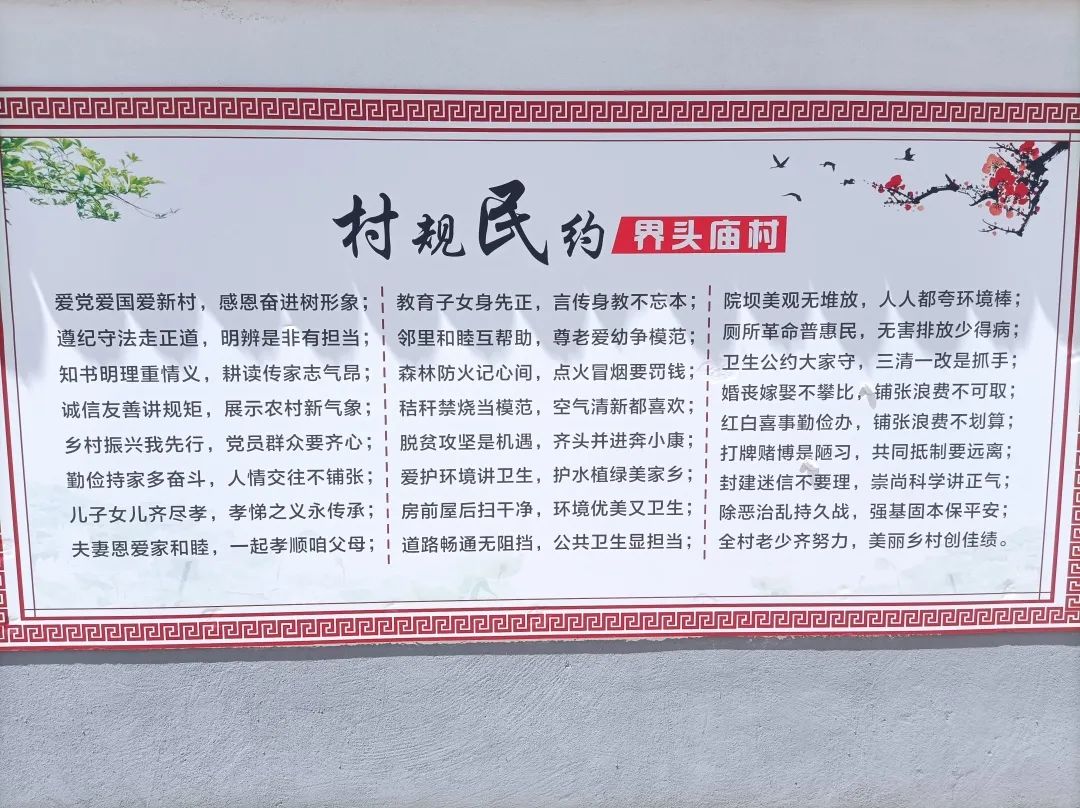 村规民约 界头庙村
爱党爱国爱新村，感恩奋进树形象；
遵纪守法走正道，明辨是非有担当；
知书明理重情义，耕读传家志气昂；
诚信友善讲规矩，展示农村新气象；
乡村振兴我先行，党员群众要齐心；
勤俭持家多奋斗，人情交往不铺张；
儿子女儿齐尽孝，孝悌之义永传承；
夫妻恩爱家和睦，一起孝顺咱父母；
教育子女身先正，言传身教不忘本；
邻里和睦互帮助，尊老爱幼争模范；
森林防火记心间，点火冒烟要罚钱；
秸秆禁烧当模范，空气清新都喜欢；
脱贫攻坚是机遇，齐头并进奔小康；
爱护环境讲卫生，护水植绿美家乡；
房前屋后扫干净，环境优美又卫生；
道路畅通无阻挡，公共卫生显担当；
院坝美观无堆放，人人都夸环境棒；
厕所革命普惠民，无害排放少得病；
卫生公约大家守，三清一改是抓手；
婚丧嫁娶不攀比，铺张浪费不可取；
红白喜事勤俭办，铺张浪费不划算；
打牌赌博是陋习，共同抵制要远离；
封建迷信不要理，崇尚科学讲正气；
除恶治乱持久战，强基固本保平安；
全村老少齐努力，美丽乡村创佳绩。